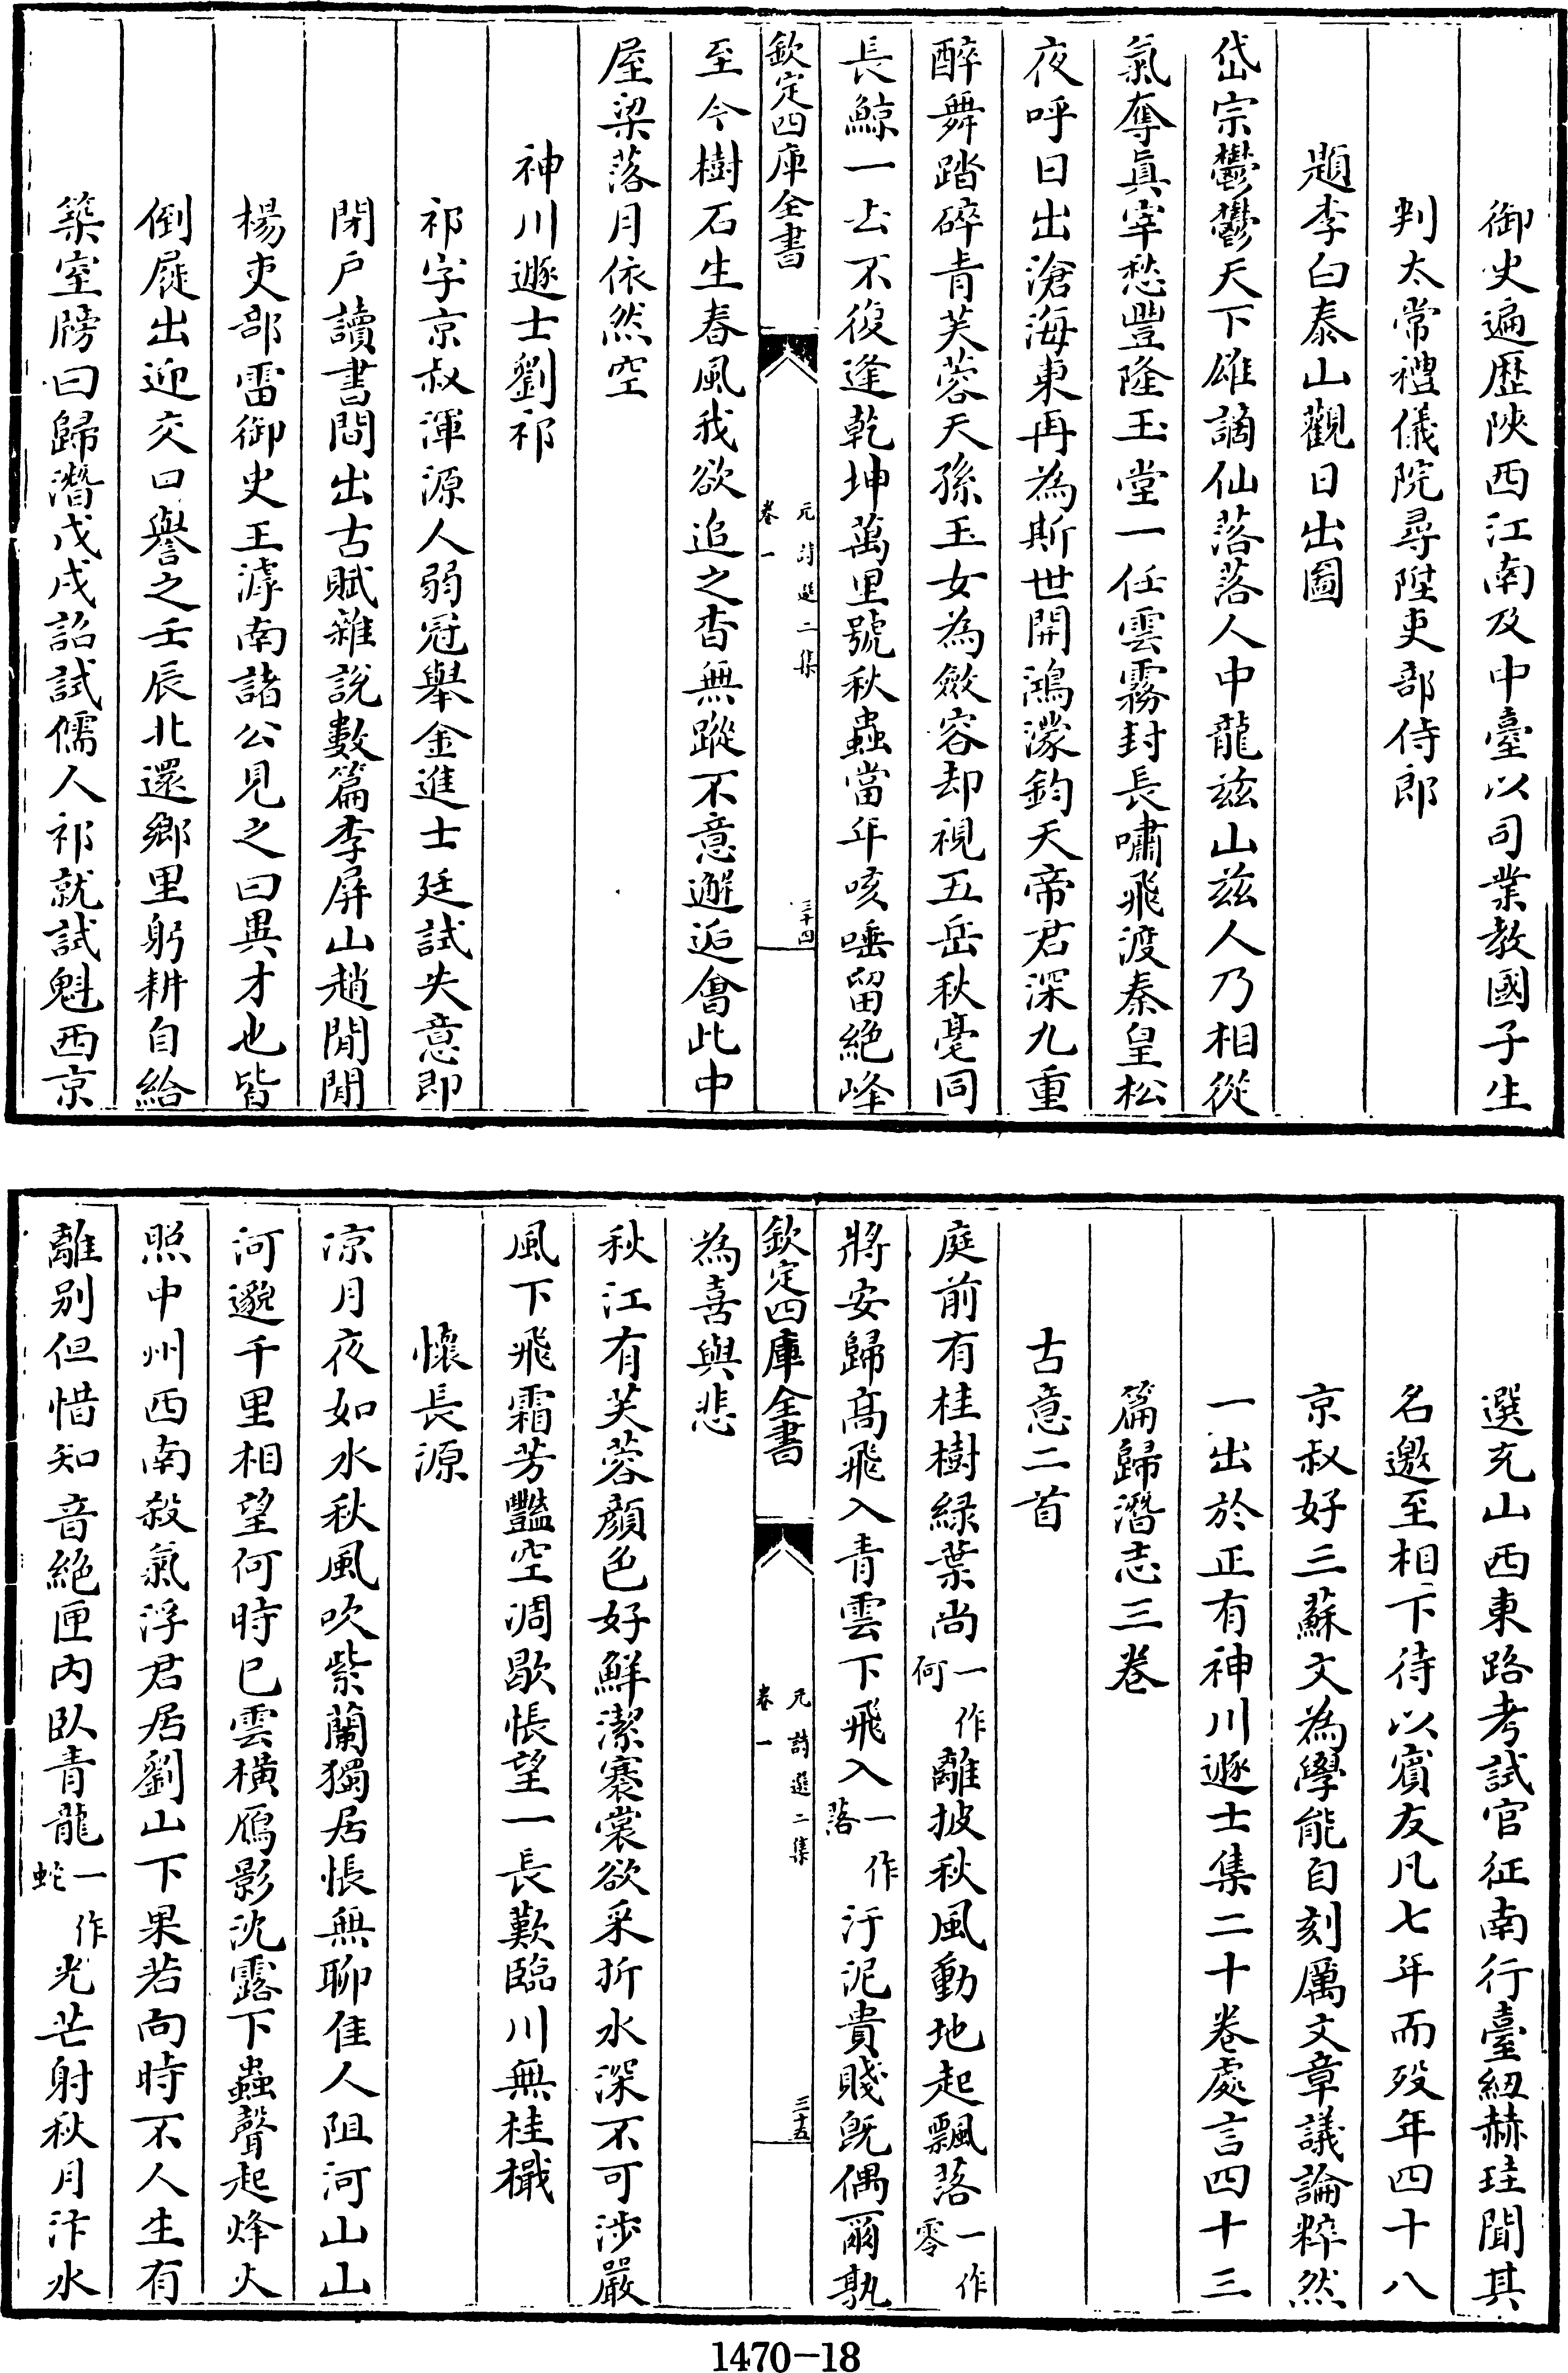 御史遍歴陜西江南及中臺以司業教國子生
判太常禮儀院尋陞吏部侍郎
題李白泰山觀日出圖
岱宗鬱鬱天下雄謫仙落落人中龍兹山兹人乃相從
氣奪真宰愁豐隆玉堂一任雲霧封長嘯飛渡秦皇松
夜呼日出滄海東再為斯世開鴻濛鈞天帝君深九重
醉舞踏碎青芙蓉天孫玉女為斂容却視五岳秋毫同
長鯨一去不復逢乾坤萬里號秋蟲當年咳唾留絶峰
欽定四庫全書
元詩選二集
卷一
三十四
至今樹石生春風我欲追之杳無蹤不意邂逅會此中
屋梁落月依然空
神川遯士劉祁
祁字京叔渾源人弱冠舉金進士廷試失意即
閉户讀書間出古賦雜說數篇李屏山趙閒閒
楊吏部雷御史王滹南諸公見之曰異才也皆
倒屣出迎交口譽之壬辰北還鄉里躬耕自給
築室牓曰歸潛戊戌詔試儒人祁就試魁西京
選充山西東路考試官征南行臺紐赫珪聞其
名邀至相下待以賓友凡七年而歿年四十八
京叔好三蘇文為學能自刻厲文章議論粹然
一出於正有神川遯士集二十卷處言四十三
篇歸潛志三卷
古意二首
庭前有桂樹緑葉尚一作何離披秋風動地起飄落一作零
將安歸髙飛入青雲下飛入一作落汙泥貴賤旣偶爾孰
欽定四庫全書
元詩選二集
卷一
三十五
為喜與悲
秋江有芙蓉顔色好鮮潔褰裳欲采折水深不可涉嚴
風下飛霜芳豔空凋歇悵望一長歎臨川無桂檝
懷長源
凉月夜如水秋風吹紫蘭獨居悵無聊佳人阻河山山
河邈千里相望何時已雲横鴈影沈露下蟲聲起烽火
照中州西南殺氣浮君居劉山下果若向時不人生有
離别但惜知音絶匣内臥青龍一作蛇光芒射秋月汴水
1470-18